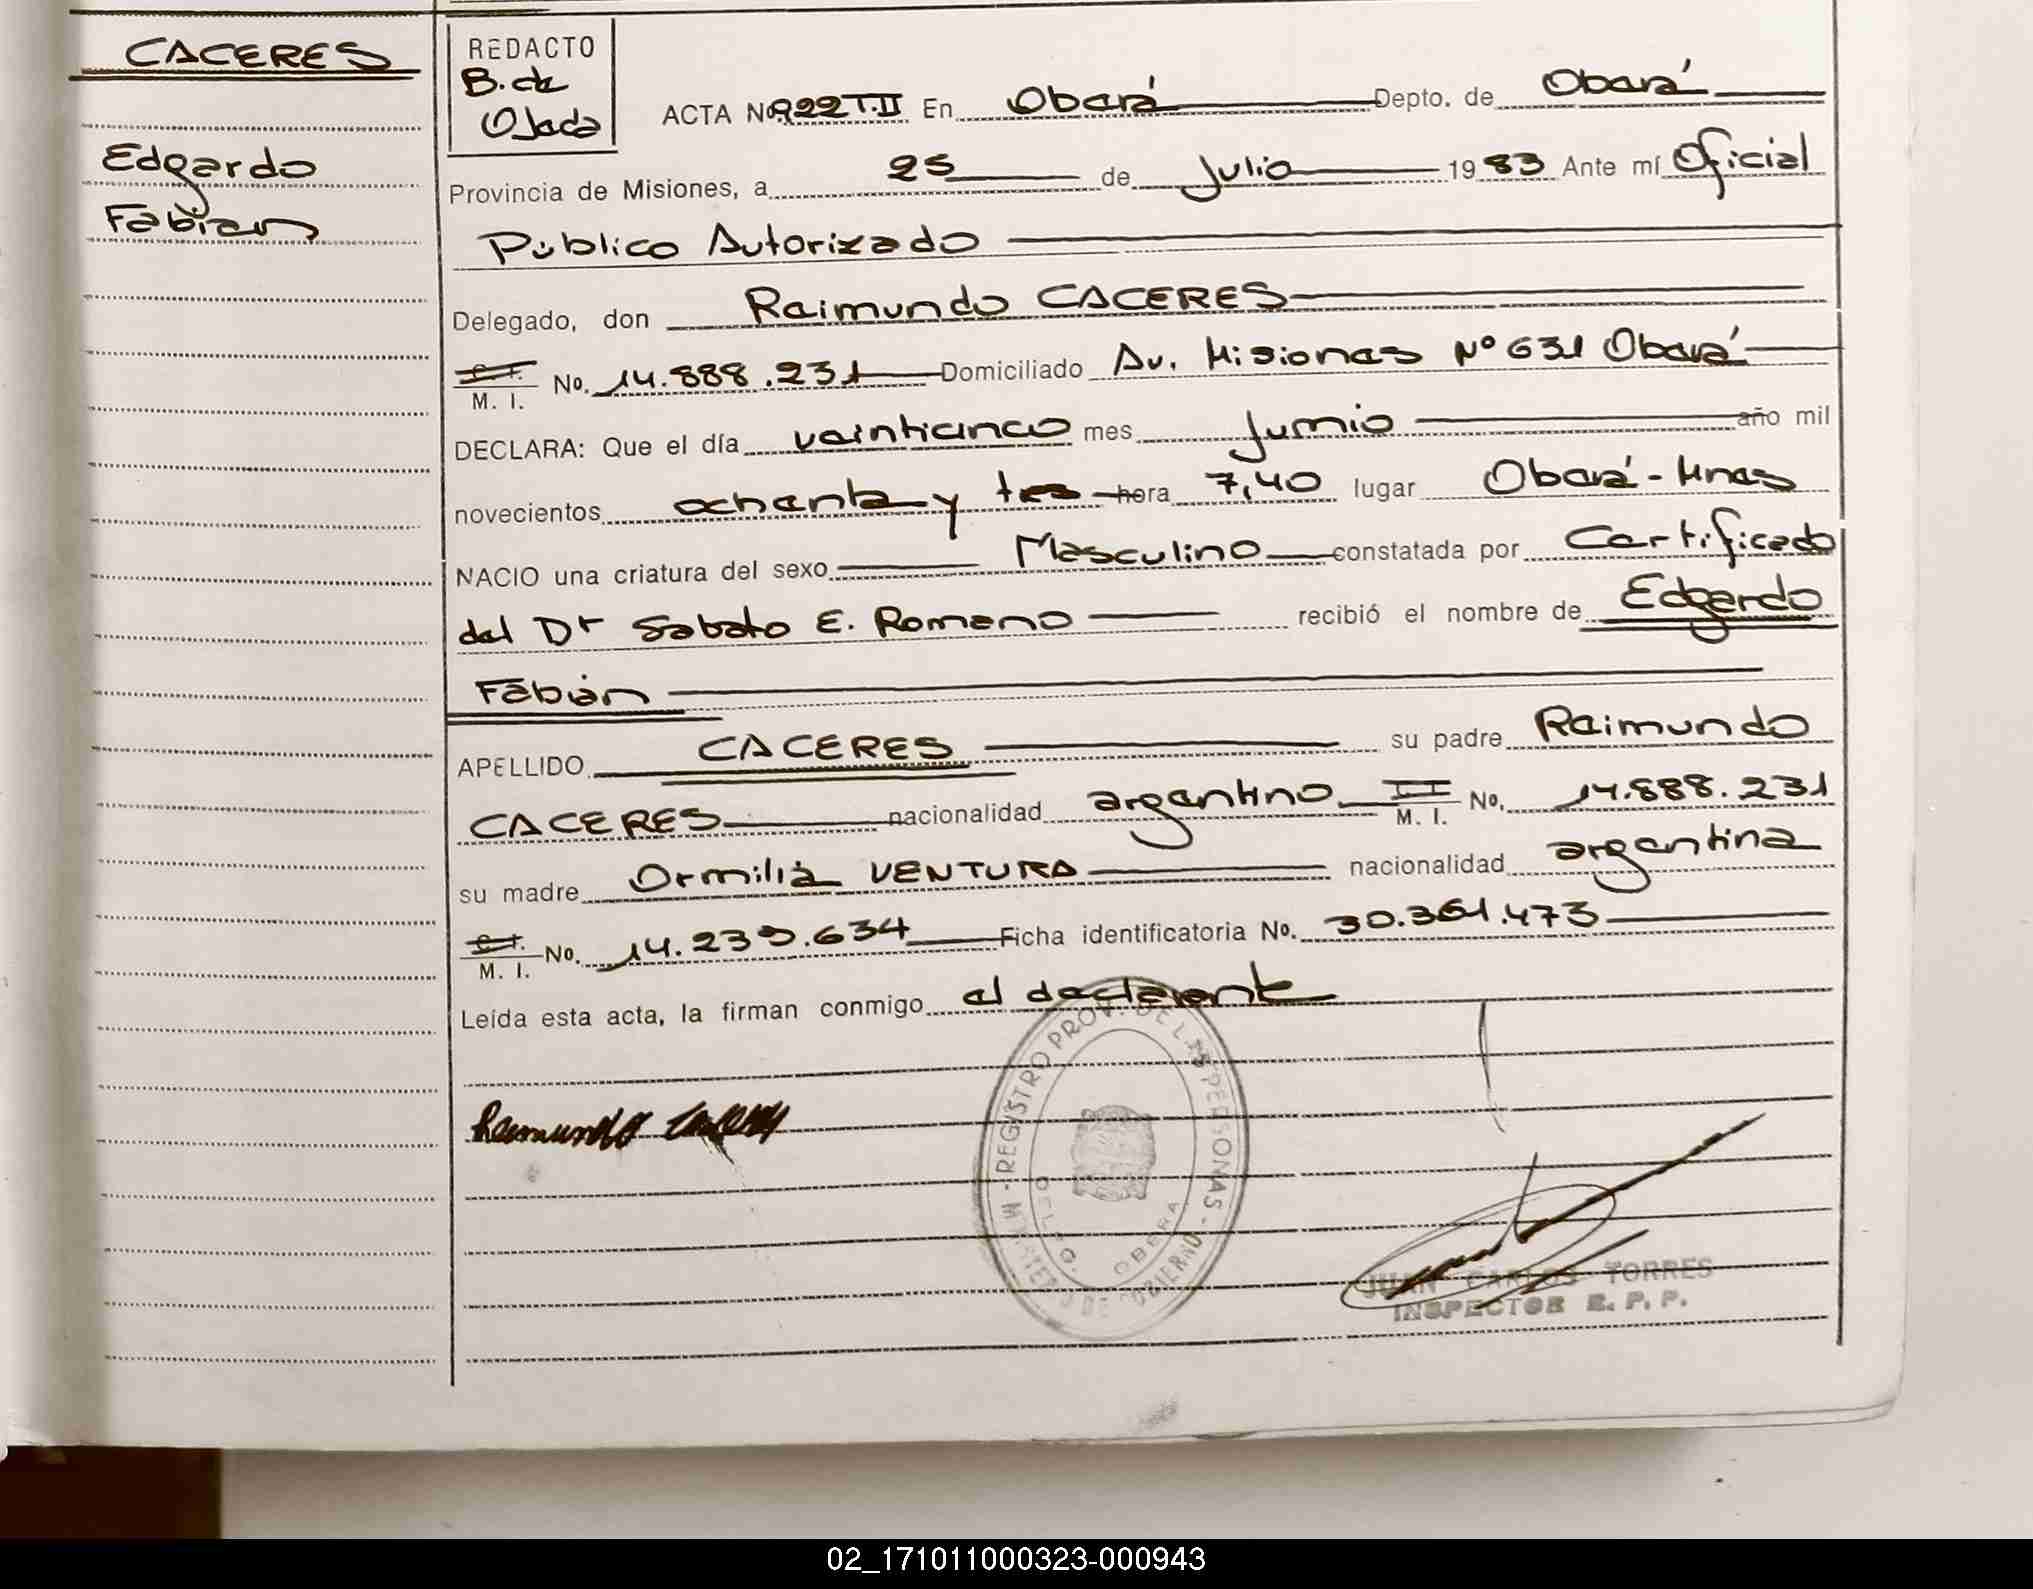 CACERES
Edgardo
Fabian
REDACTO
B. de
Ojeda
ACTA No. 922 T.II En Oberá Depto. de Oberá
Provincia de Misiones, a 25 de Julio 1983 Ante mí Oficial
Público Autorizado
Delegado, don Raimundo CACERES
C. I. M. I. No. 14.888.231 Domiciliado Av. Misiones Nº 631 Oberá
DECLARA: Que el día veinticinco mes Junio año mil
novecientos ochenta y tres hora 7,40 lugar Oberá - Mnes
NACIO una criatura del sexo Masculino constatada por Certificado
del Dr Sabato E. Romano recibió el nombre de Edgardo
Fabián
APELLIDO CACERES su padre Raimundo
CACERES nacionalidad argentino M. I. No. 14.888.231
su madre Ormilia VENTURA nacionalidad argentina
C. I. M. I. No. 14.239.634 Ficha identificatoria No. 30.361.473
Leída esta acta, la firman conmigo el declarante
Raimundo Caceres
REGISTRO PROV. DE LAS PERSONAS - MINISTERIO DE GOBIERNO
DELEG. OBERA
JUAN CARLOS TORRES
INSPECTOR R. P. P.
02_171011000323-000943